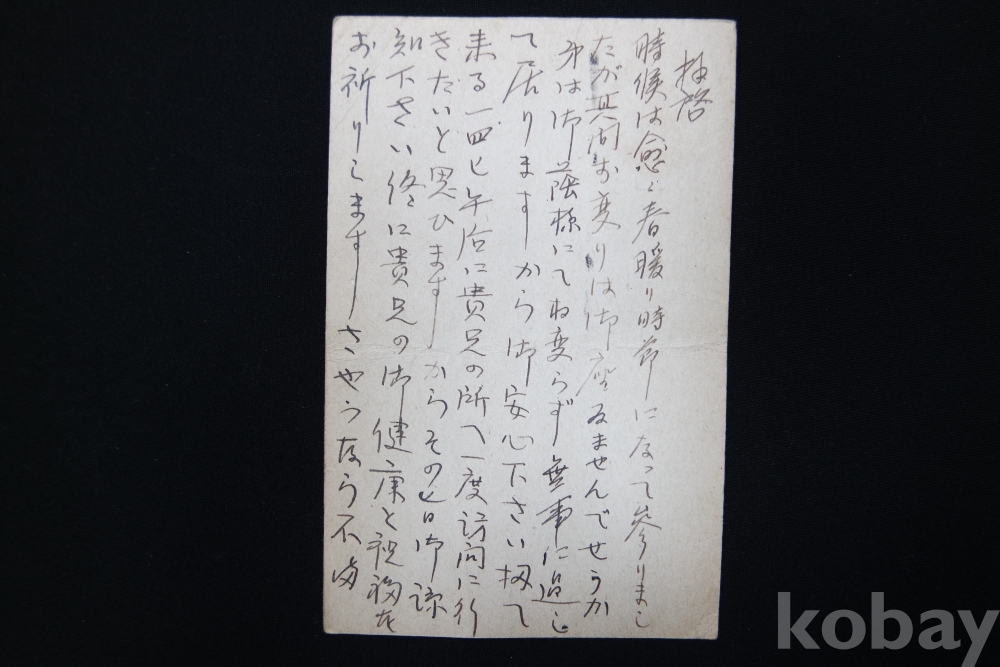 拝啓
時候は愈々春暖り時節になって参りまし
たが其間お変りは御座ゐませんでせうか
弟は御蔭様にて相変らず無事に過し
て居りますから御安心下さい扨て
来る一四七午后に貴兄の所へ一度訪問に行
きたいと思ひますからその七日御諒
知下さい終に貴兄の御健康と祝福を
お祈りします さやうなら不備
kobay